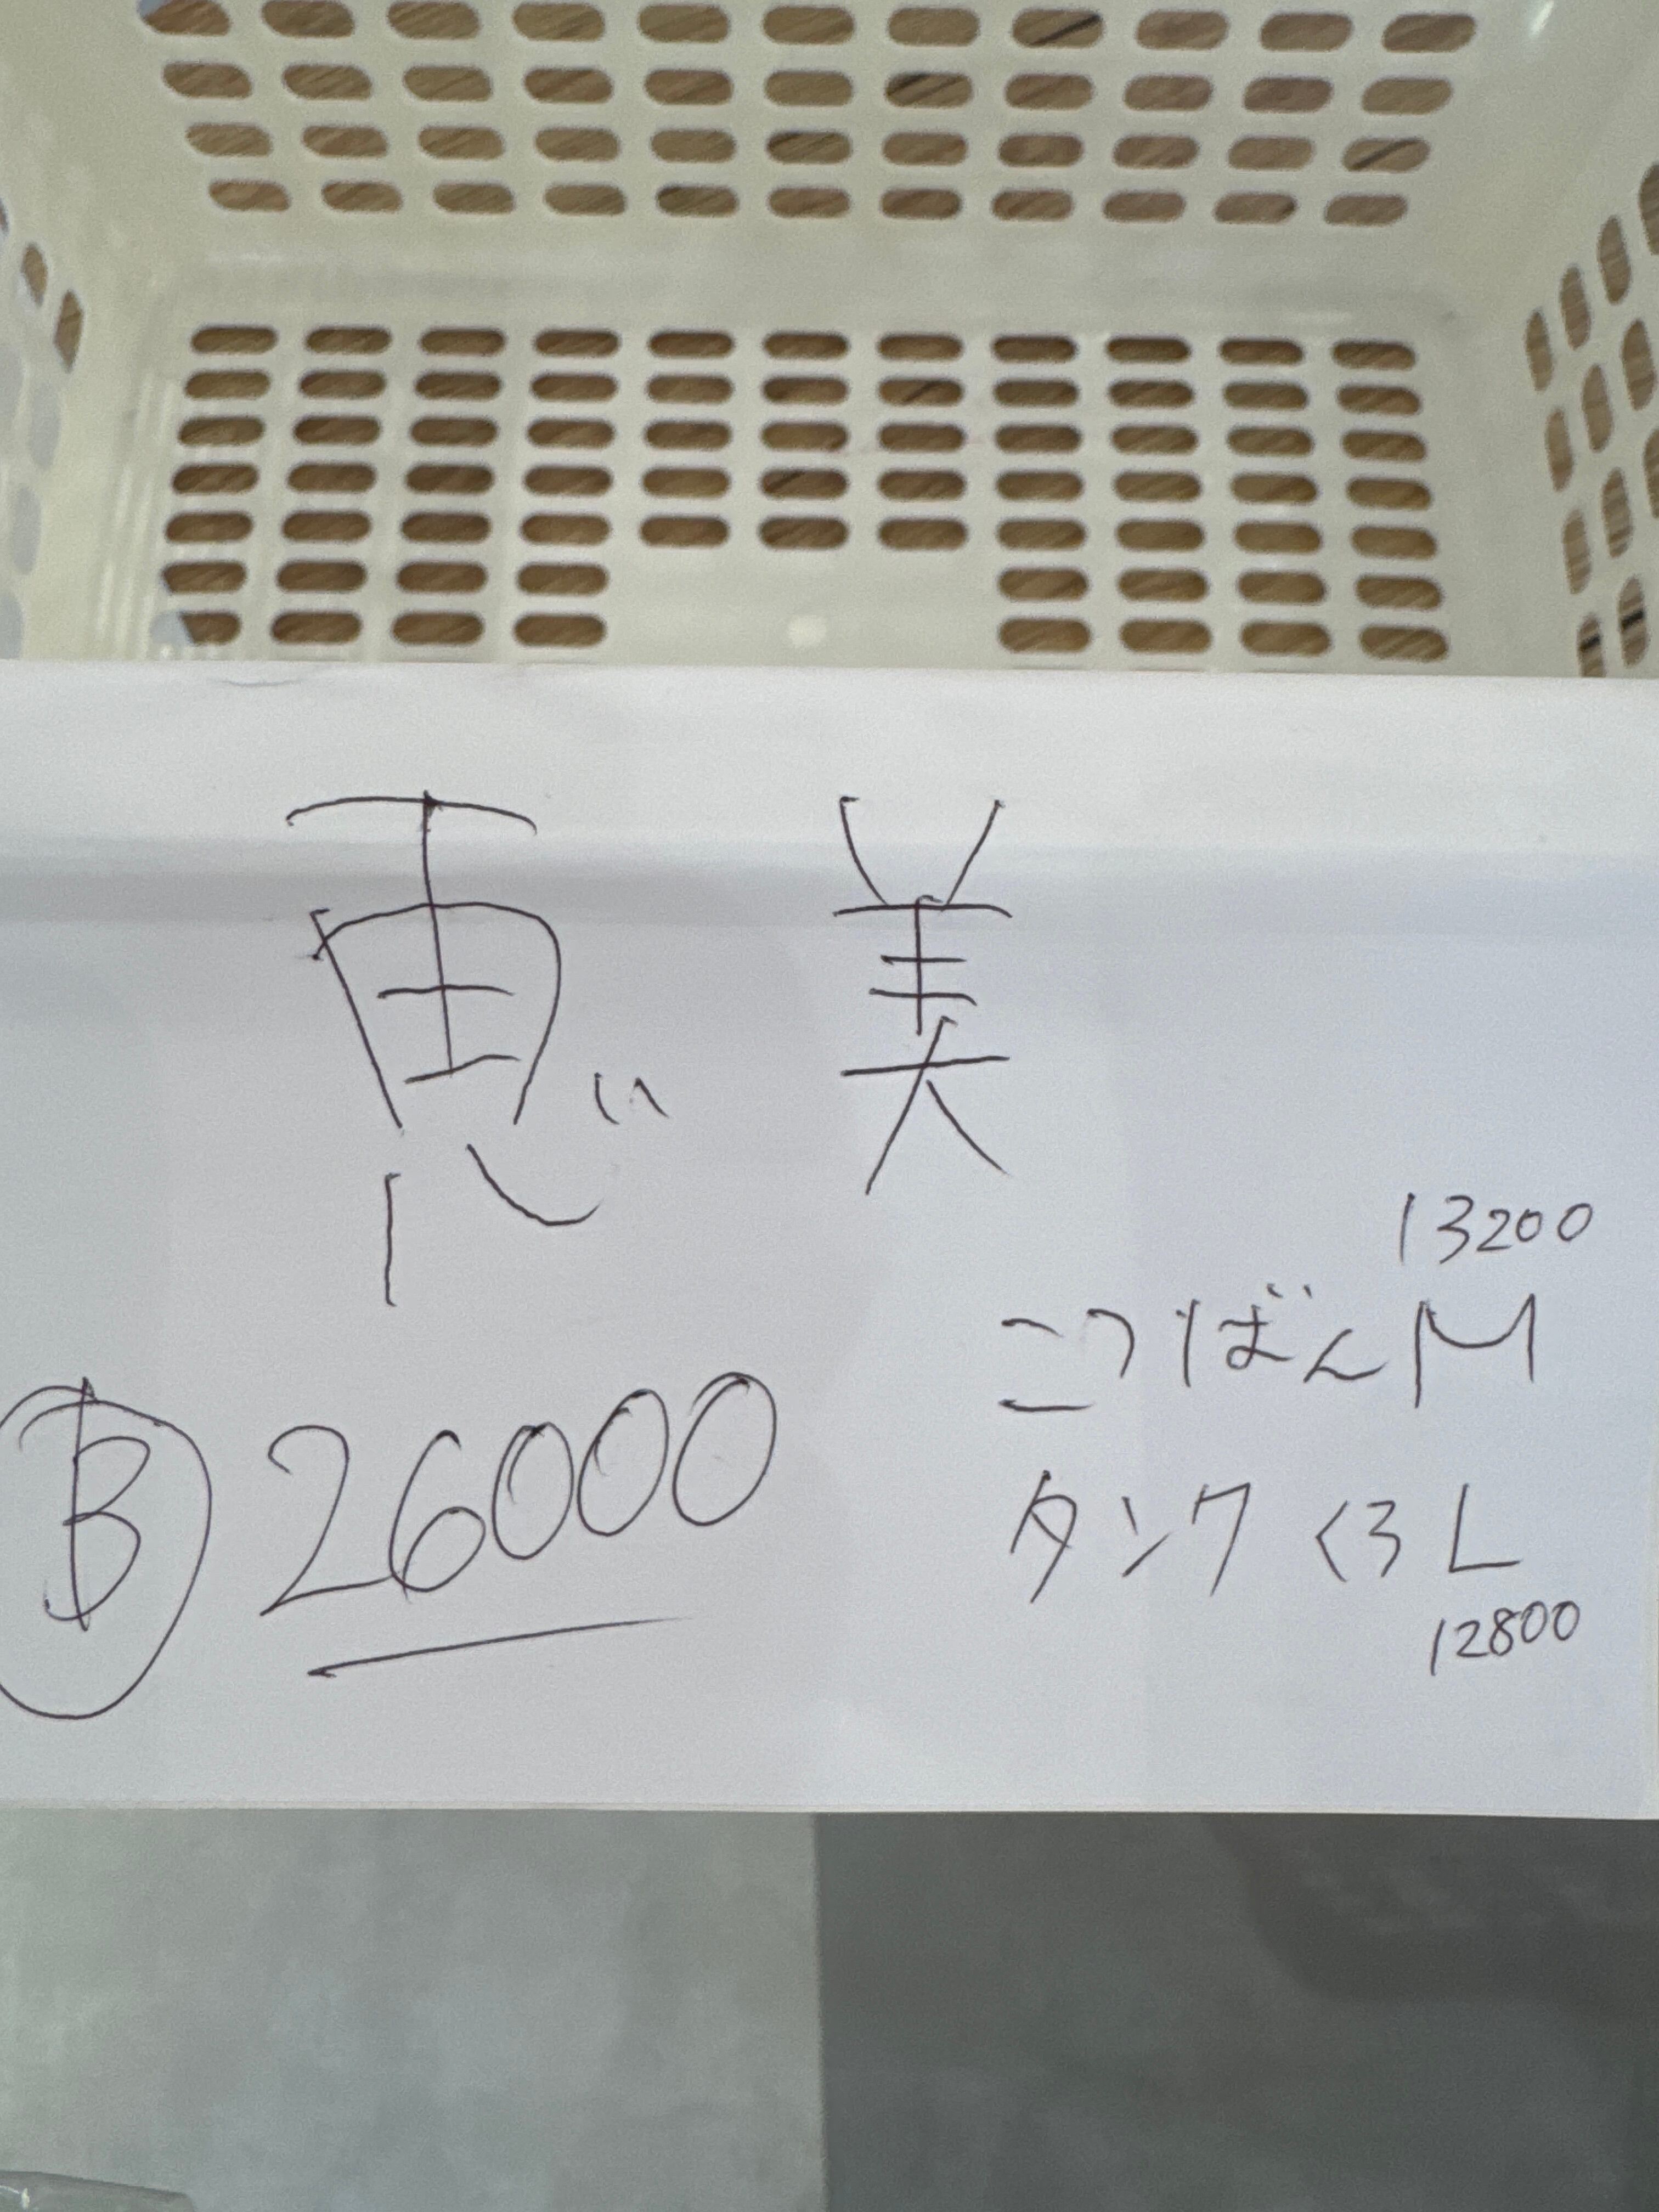 恵美
13200
こつばんM
タンクくろL
12800
Ⓑ26000